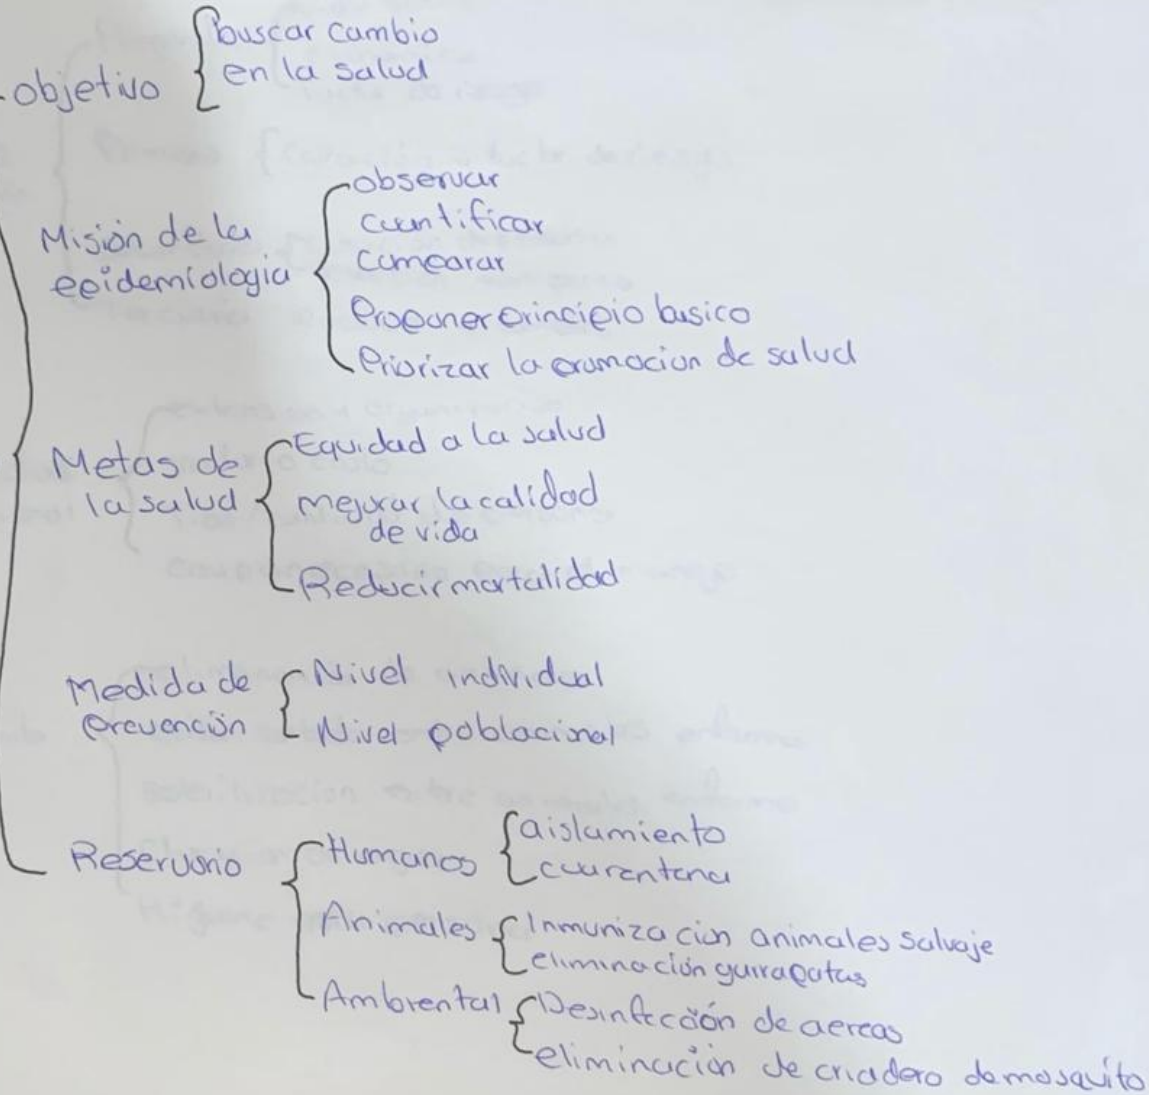 objetivo
buscar cambio
en la salud
Misión de la
epidemiologia
observar
cuantificar
comparar
Proponer principio basico
Priorizar la promocion de salud
Metas de
la salud
Equidad a la salud
mejorar la calidad
de vida
Reducir mortalidad
Medida de
prevención
Nivel individual
Nivel poblacional
Reservorio
Humanos
aislamiento
cuarentena
Animales
Inmunizacion animales salvaje
eliminación garrapatas
Ambiental
Desinfección de aereas
eliminación de criadero de mosquito